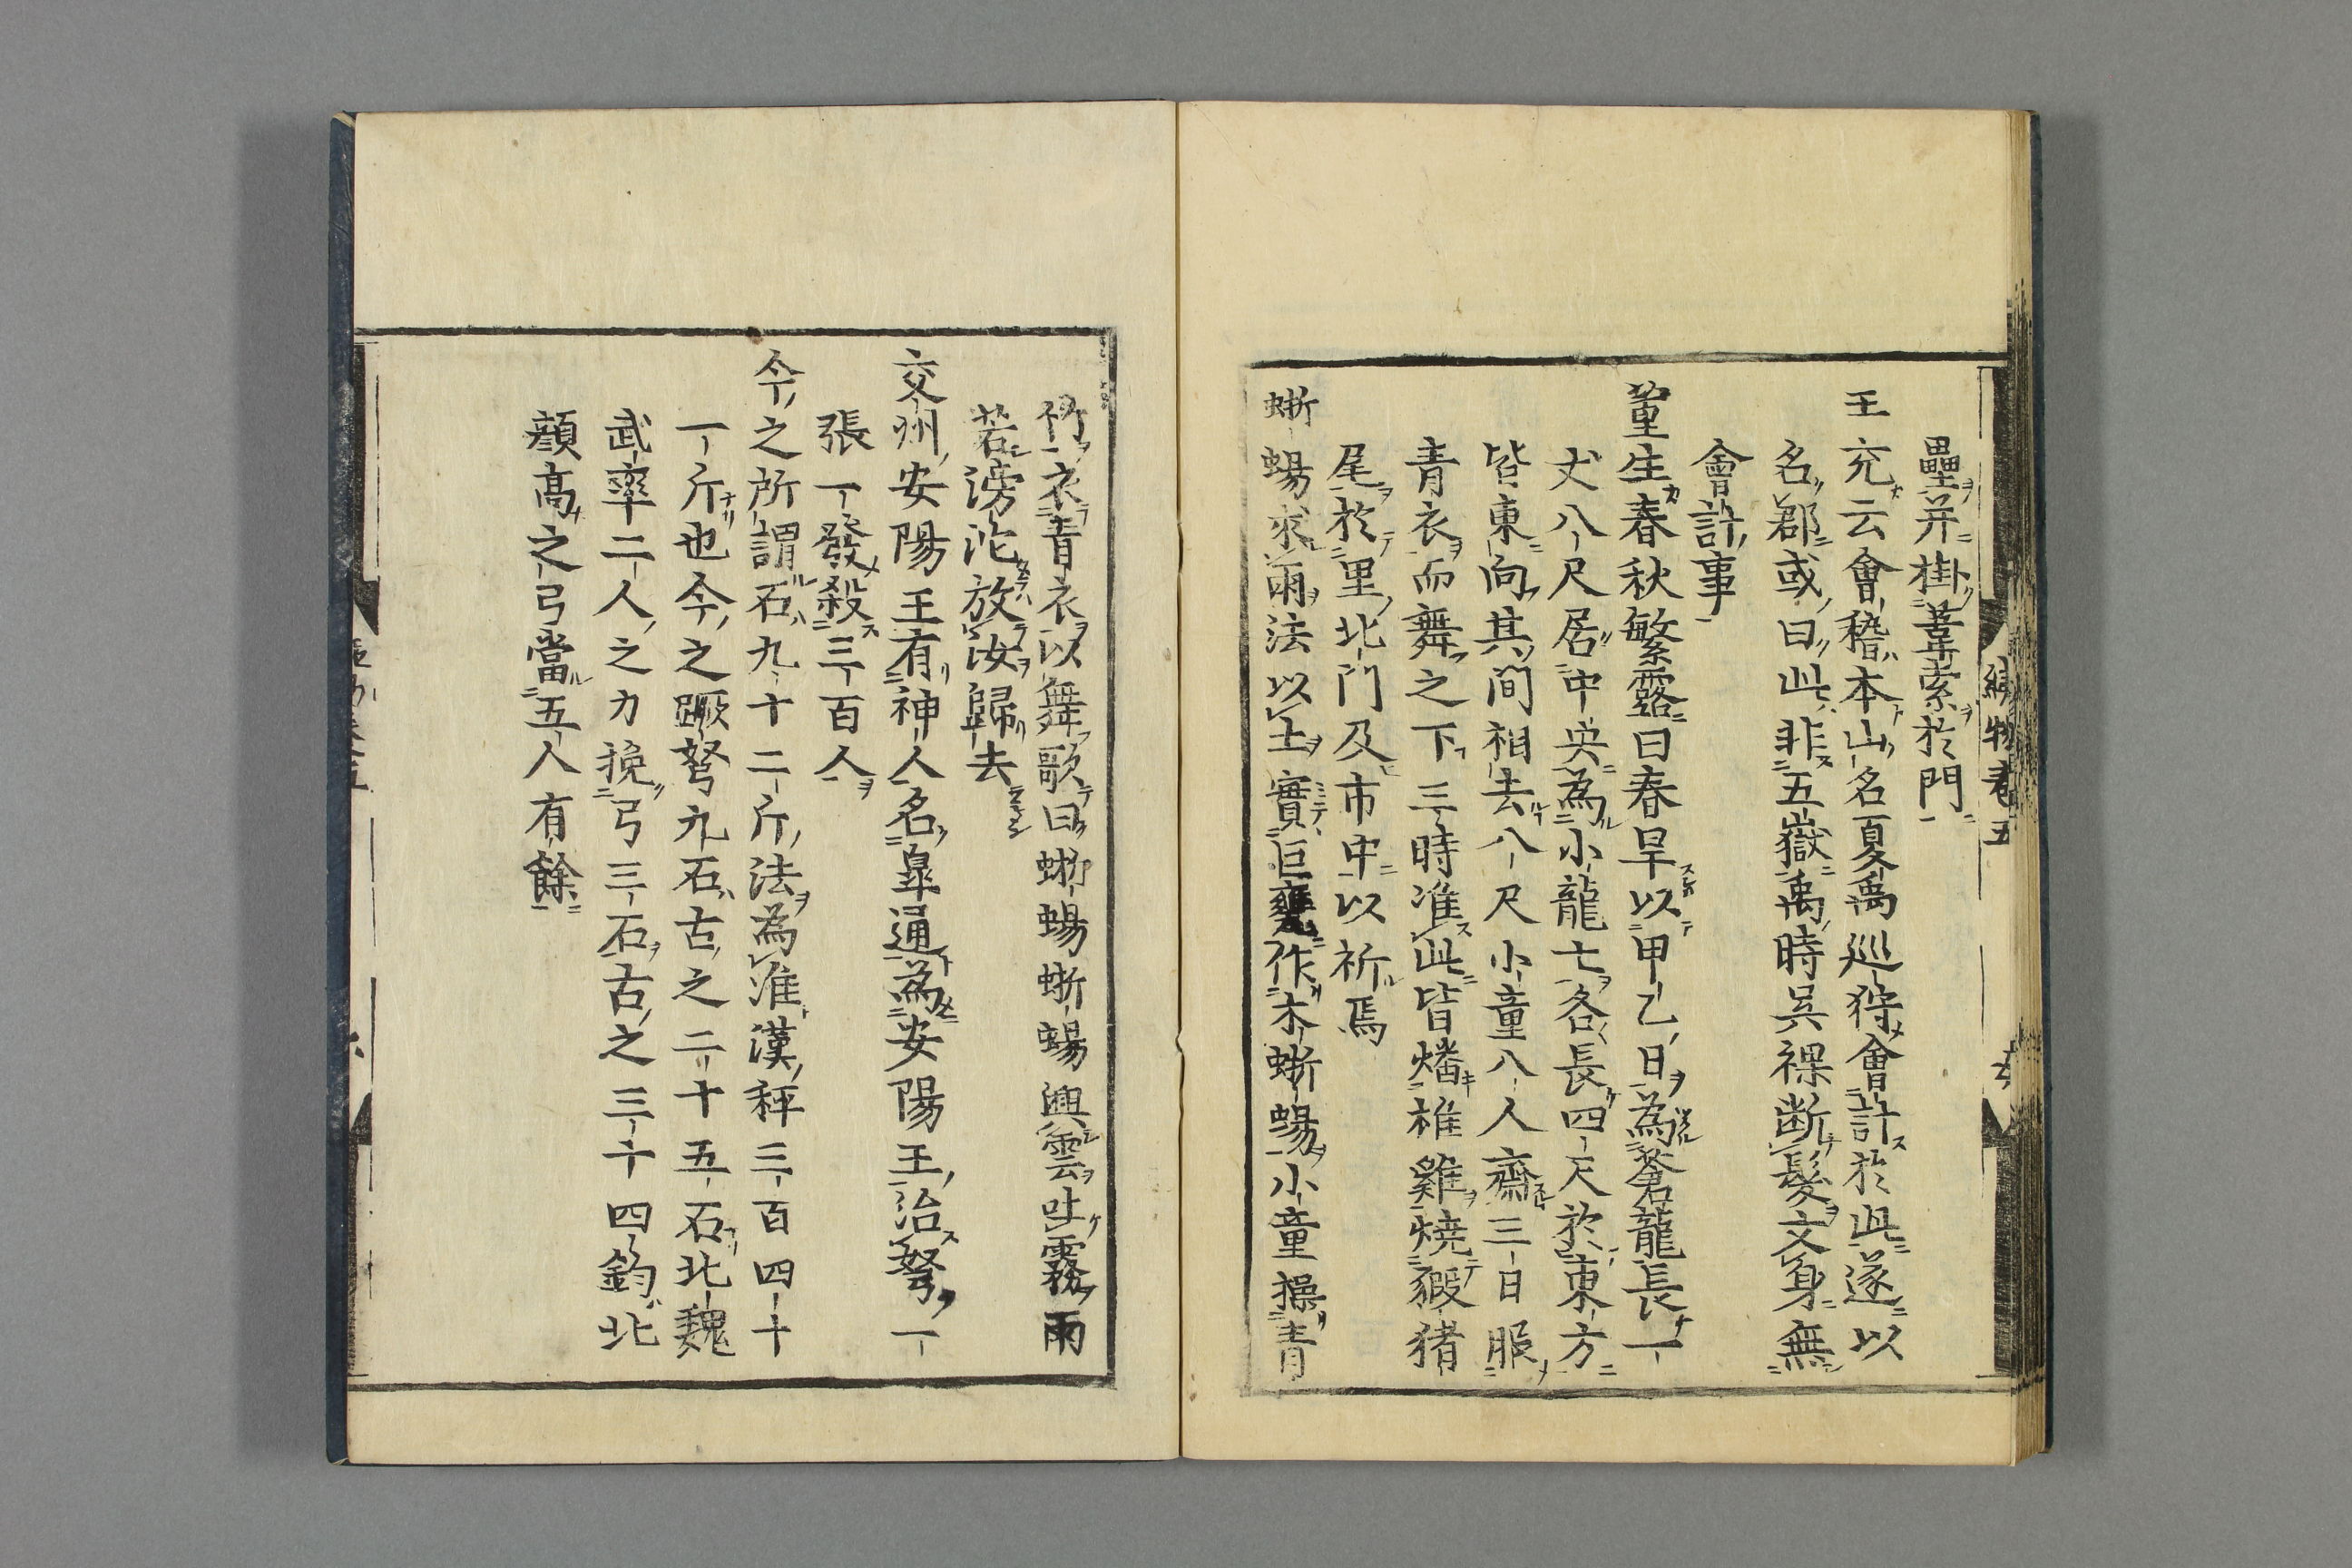 壘并掛葦索於門
王充云會稽本山名夏禹巡狩會計於此遂以
名郡或曰此非五嶽禹時吳裸断髮文身無
會計事
董生春秋繁露曰春旱以甲乙日為蒼龍長一
丈八尺居中央為小龍七各長四尺於東方
皆東向其間相去八尺小童八人齋三日服
青衣而舞之下三時准此皆燔椎雞燒豭猪
尾於里北門及市中以祈焉
蜥蜴求雨法以土實巨甕作木蜥蜴小童操青
竹衣青衣以舞歌曰蜥蜴蜥蜴興雲吐霧雨
若滂沱放汝歸去
交州安陽王有神人名皐通為安陽王治弩一
張一發殺三百人
今之所謂石九十二斤法為准漢秤三百四十
一斤也今之蹶弩九石古之二十五石北魏
武率二人之力挽弓三石古之三十四鈞北
顔高之弓當五人有餘
續物卷五